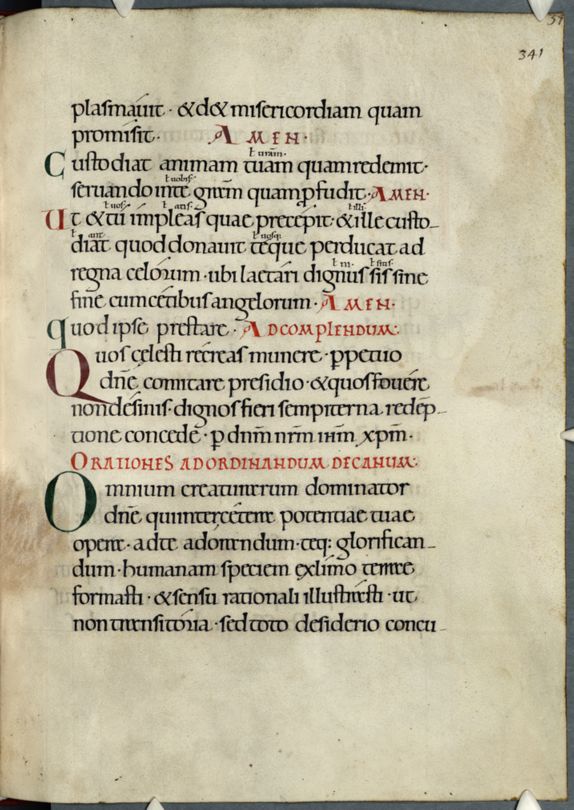 341
plasmauit · & d& misericordiam quam
promisit · AMEN ·
Custodiat animam tuam quam redemit ·
ł uram ·
seruando in te grãm quam ꝑfudit · AMEN ·
ł uobis ·
Ut & tu impleas quae precepit · & ille custo-
ł uos · ł atis · ł illi ·
diat quod donauit teque perducat ad
ł ant ł uosq;
regna celorum · ubi laetari dignus sis sine
ł ni · ł sitis ·
fine cum cetibus angelorum · AMEN ·
quod ipse prestare · AD COMPLENDUM ·
Quos celesti recreas munere · ꝑpetuo
dñe comitare presidio · & quos fouere
non desinis · dignos fieri sempiterna redẽp-
tione concede · ꝑ dnm̃ nrm̃ ihm̃ xpm̃ ·
ORATIONES AD ORDINANDUM DECANUM ·
Omnium creaturarum dominator
dñe qui intercetera potentiae tuae
opera · ad te adorandum · teq: glorifican-
dum · humanam speciem ex limo terrae
formasti · & sensu rationali illustrasti · ut
non transitoria · sed toto desiderio concu-